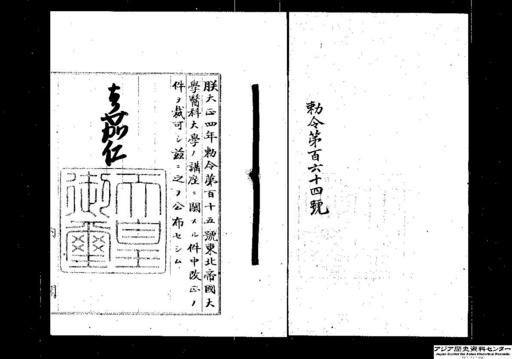 勅令第百六十四號
朕大正四年勅令第百十五號東北帝國大
學醫科大學ノ講座ニ關スル件中改正ノ
件ヲ裁可シ茲ニ之ヲ公布セシム
嘉仁
天皇
御璽
アジア歴史資料センター
Japan Center for Asian Historical Records